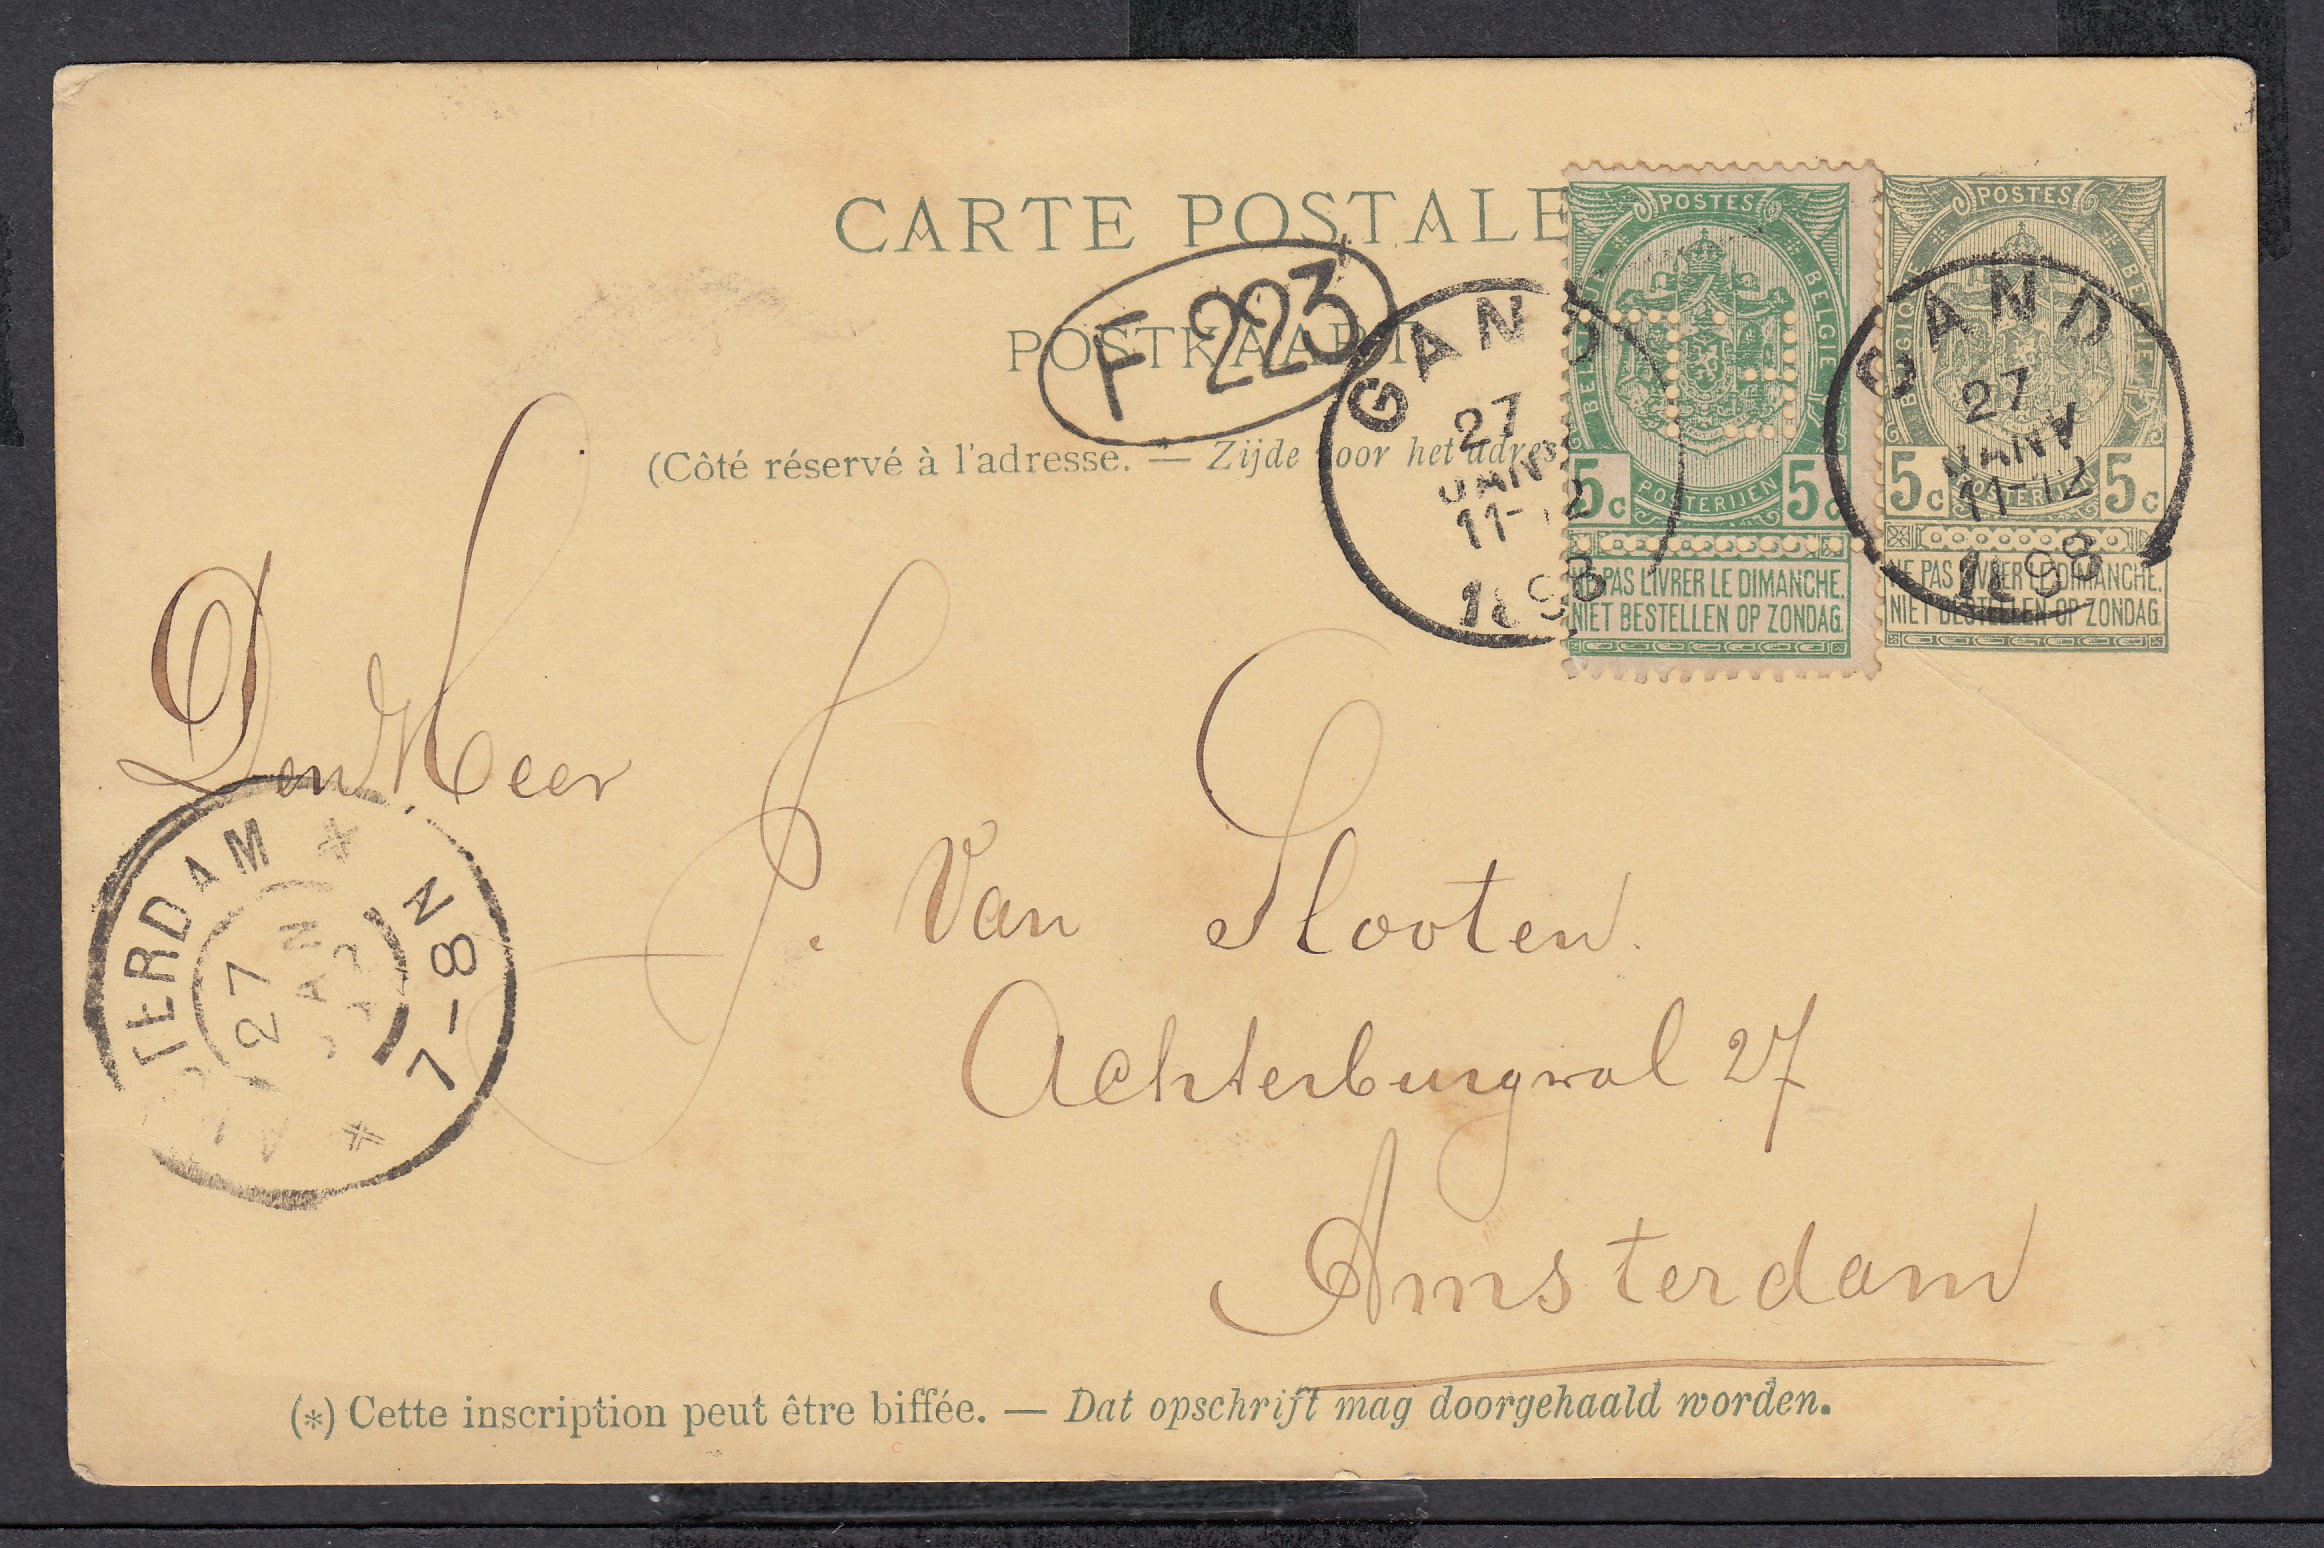 CARTE POSTALE
POSTKAART
(Côté réservé à l'adresse. — Zijde voor het adres
F 223
GAND
27
JANV
11-12
1898
GAND
27
JANV
11-12
1898
POSTES
BELGIQUE BELGIE
POSTERIJEN
5c 5c
NE PAS LIVRER LE DIMANCHE.
NIET BESTELLEN OP ZONDAG.
POSTES
BELGIQUE BELGIE
POSTERIJEN
5c 5c
NE PAS LIVRER LE DIMANCHE.
NIET BESTELLEN OP ZONDAG.
Den Heer
J. Van Slooten.
Achterburgwal 27
Amsterdam
AMSTERDAM *
27
JAN
7-8N
(*) Cette inscription peut être biffée. — Dat opschrift mag doorgehaald worden.